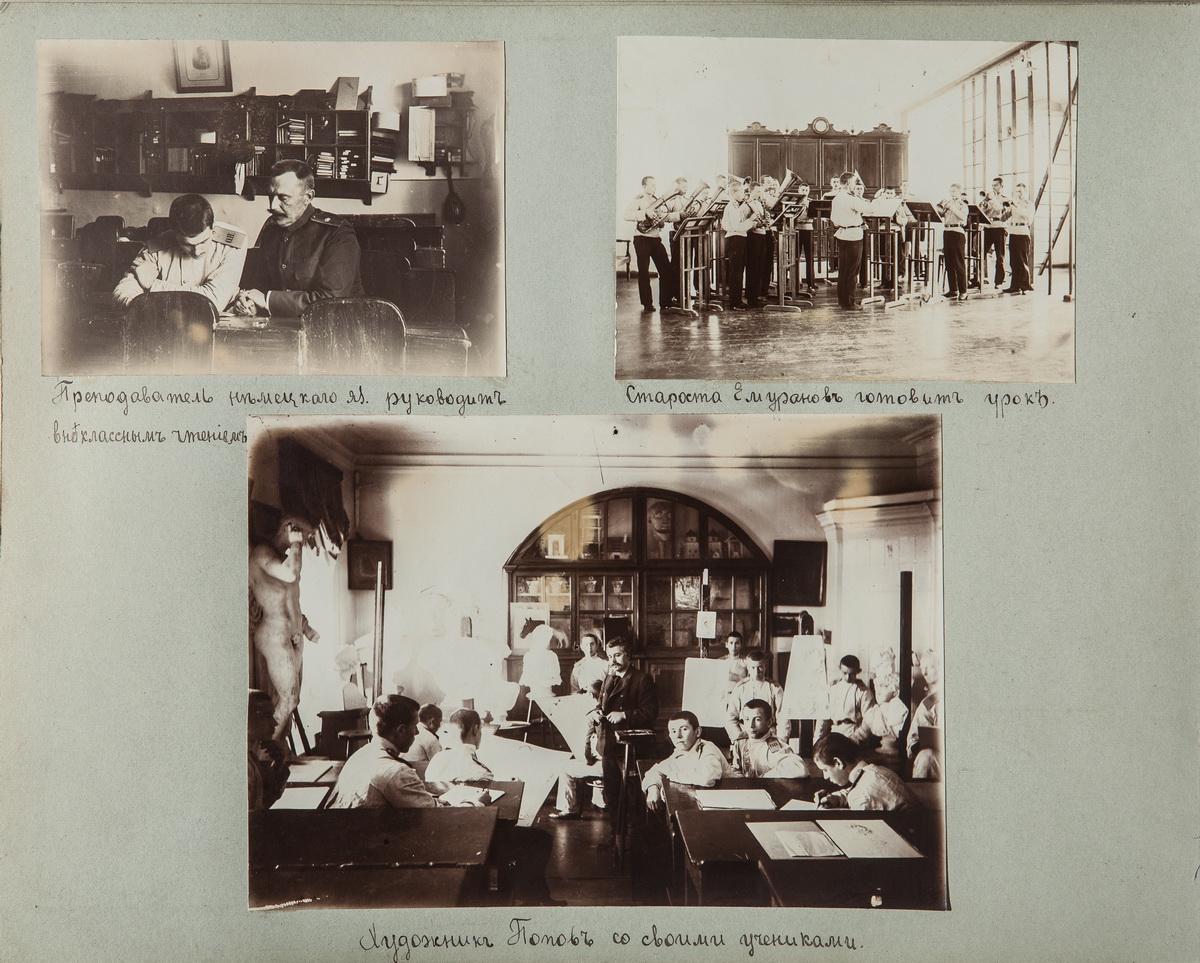 Преподаватель нѣмецкаго яз. руководитъ
внѣкласснымъ чтеніемъ
Староста Емурановъ готовитъ урокъ.
Художникъ Поповъ со своими учениками.